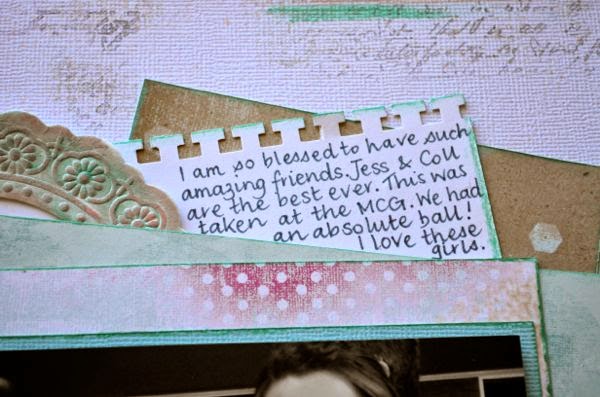 I am so blessed to have such
amazing friends. Jess & Coll
are the best ever. This was
taken at the MCG. We had
an absolute ball!
I love these
girls.